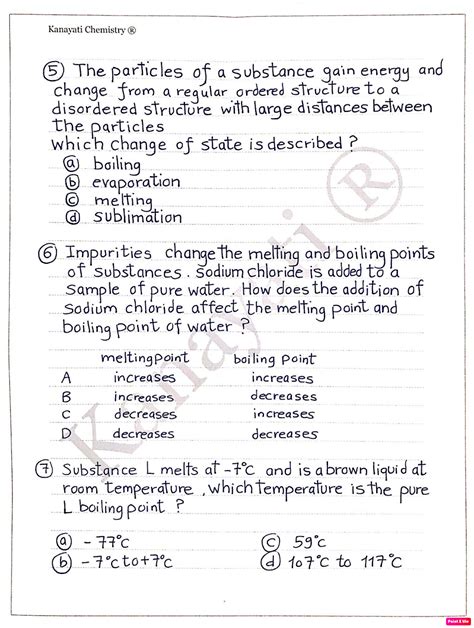 Kanayati Chemistry ®
⑤ The particles of a substance gain energy and
change from a regular ordered structure to a
disordered structure with large distances between
the particles
which change of state is described ?
ⓐ boiling
ⓑ evaporation
ⓒ melting
ⓓ sublimation
⑥ Impurities change the melting and boiling points
of substances. sodium chloride is added to a
sample of pure water. How does the addition of
sodium chloride affect the melting point and
boiling point of water ?
melting point boiling point
A increases increases
B increases decreases
C decreases increases
D decreases decreases
⑦ Substance L melts at -7°c and is a brown liquid at
room temperature , which temperature is the pure
L boiling point ?
ⓐ -77°c ⓒ 59°c
ⓑ -7°c to +7°c ⓓ 107°c to 117°c
Kanayati ®